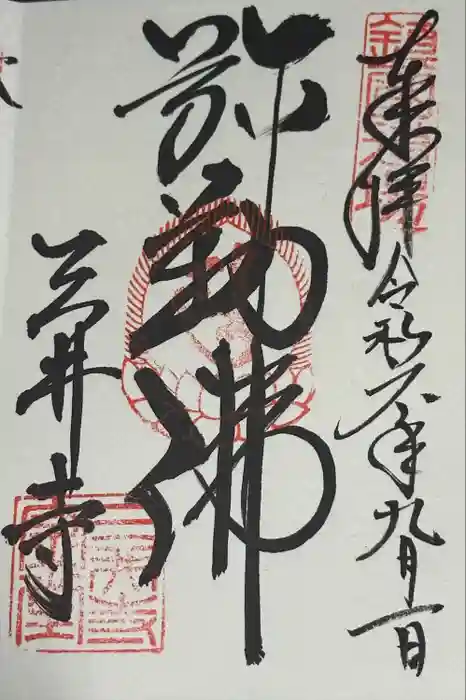 奉拝 令和元年九月一日
弥勒佛
三井寺